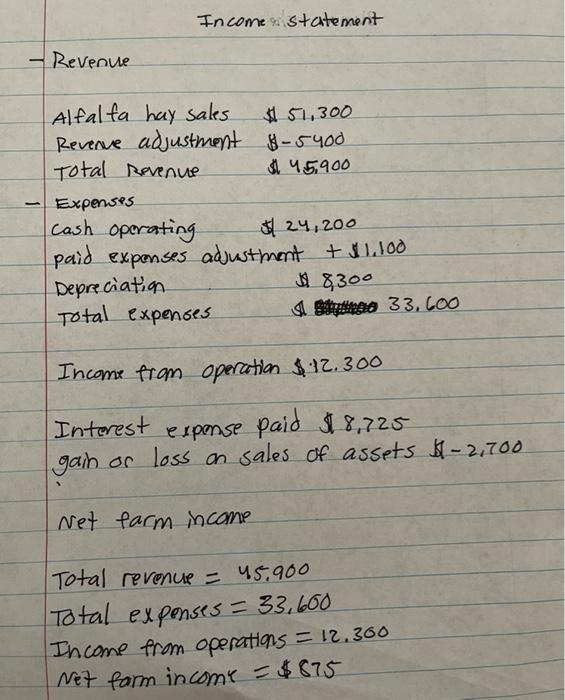 Income statement
- Revenue
Alfalfa hay sales $ 51,300
Revenue adjustment $-5400
Total Revenue $ 45,900
- Expenses
Cash operating $ 24,200
paid expenses adjustment + $1,100
Depreciation $ 8,300
Total expenses $ 33,600
Income from operation $ 12,300
Interest expense paid $ 8,725
gain or loss on sales of assets $ -2,700
Net farm income
Total revenue = 45,900
Total expenses = 33,600
Income from operations = 12,300
Net farm income = $875